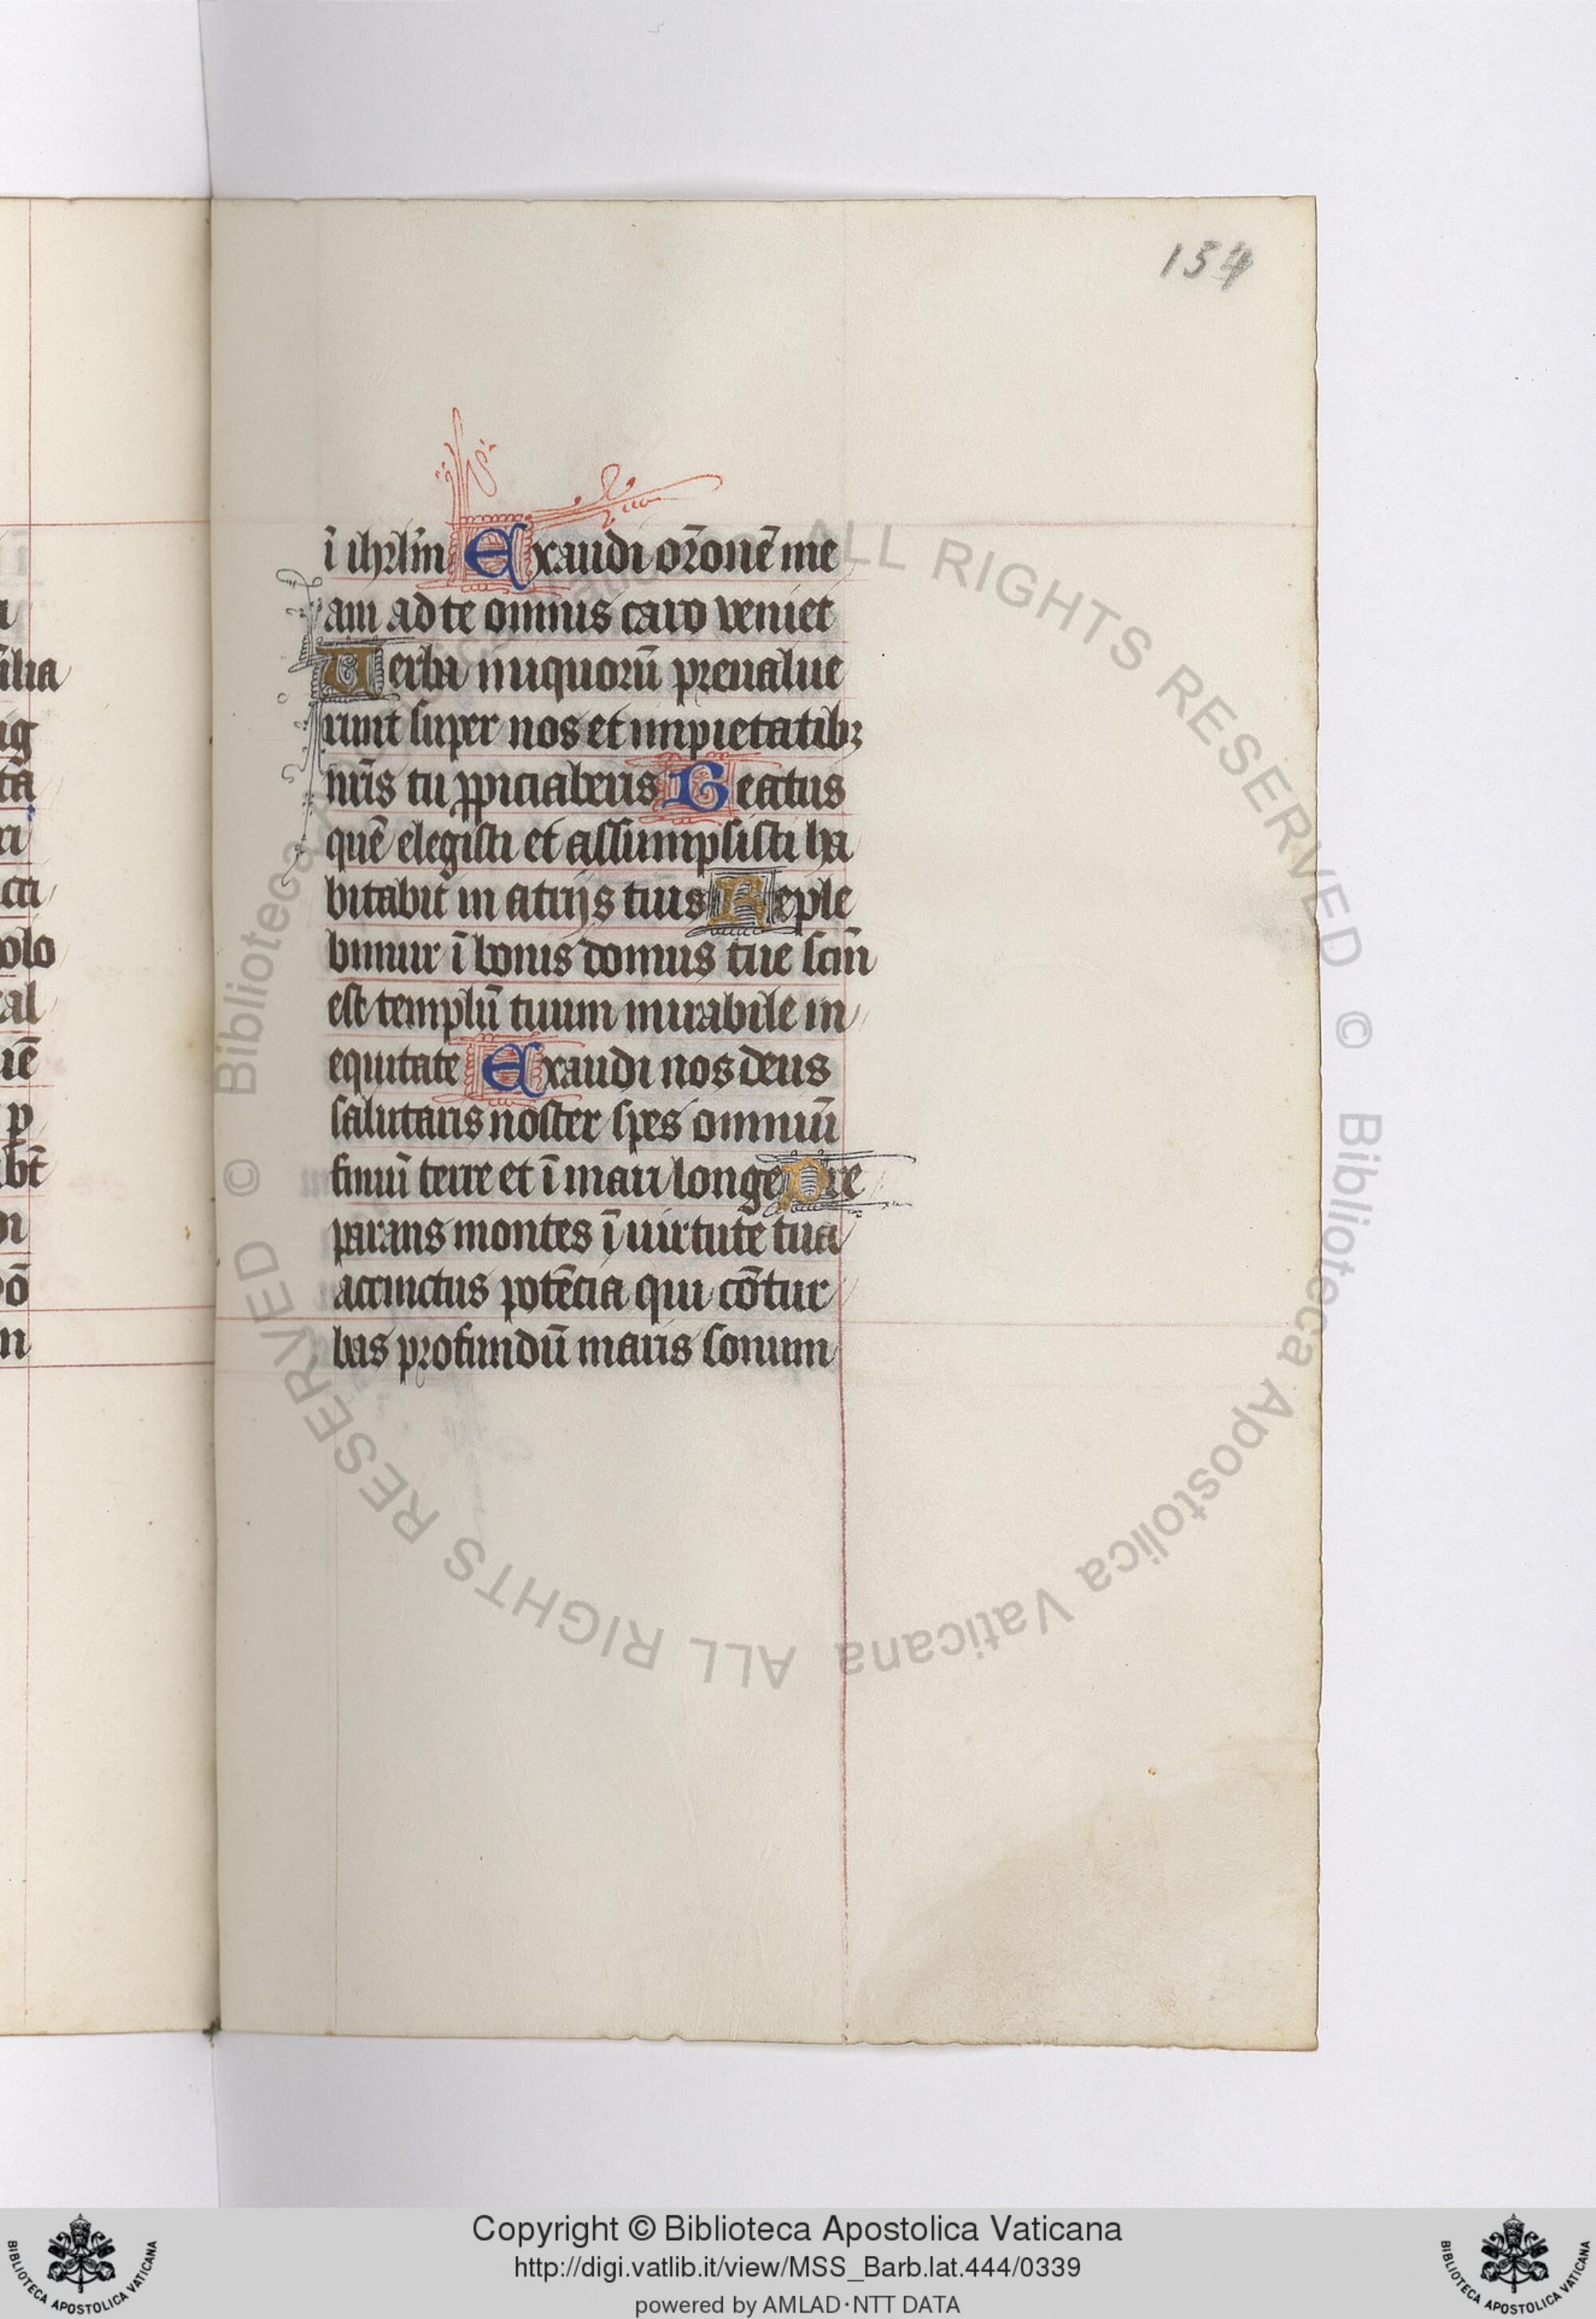 154
ı̄ ihrl̄m Exaudi or̄onē me
am ad te omnis caro veniet
Verba iniquorū preualue
runt super nos et impietatibꝫ
nr̄is tu ꝓpiciaberis Beatus
quē elegisti et assumpsisti ha
bitabit in atrijs tuis Reple
bimur ı̄ bonis domus tue scm̄
est templū tuum mirabile in
equitate Exaudi nos deus
salutaris noster spes omniū
finiū terre et ı̄ mari longe Pre
parans montes ı̄ uirtute tua
accinctus potēcia qui cōtur
bas profundū maris sonum
ilia
ig
tā
ri
cti
olo
al
uē
p
bt̄
dō
© Biblioteca Apostolica Vaticana ALL RIGHTS RESERVED © Biblioteca Apostolica Vaticana ALL RIGHTS RESERVED
Copyright © Biblioteca Apostolica Vaticana
http://digi.vatlib.it/view/MSS_Barb.lat.444/0339
powered by AMLAD·NTT DATA
BIBLIOTECA APOSTOLICA VATICANA
BIBLIOTECA APOSTOLICA VATICANA